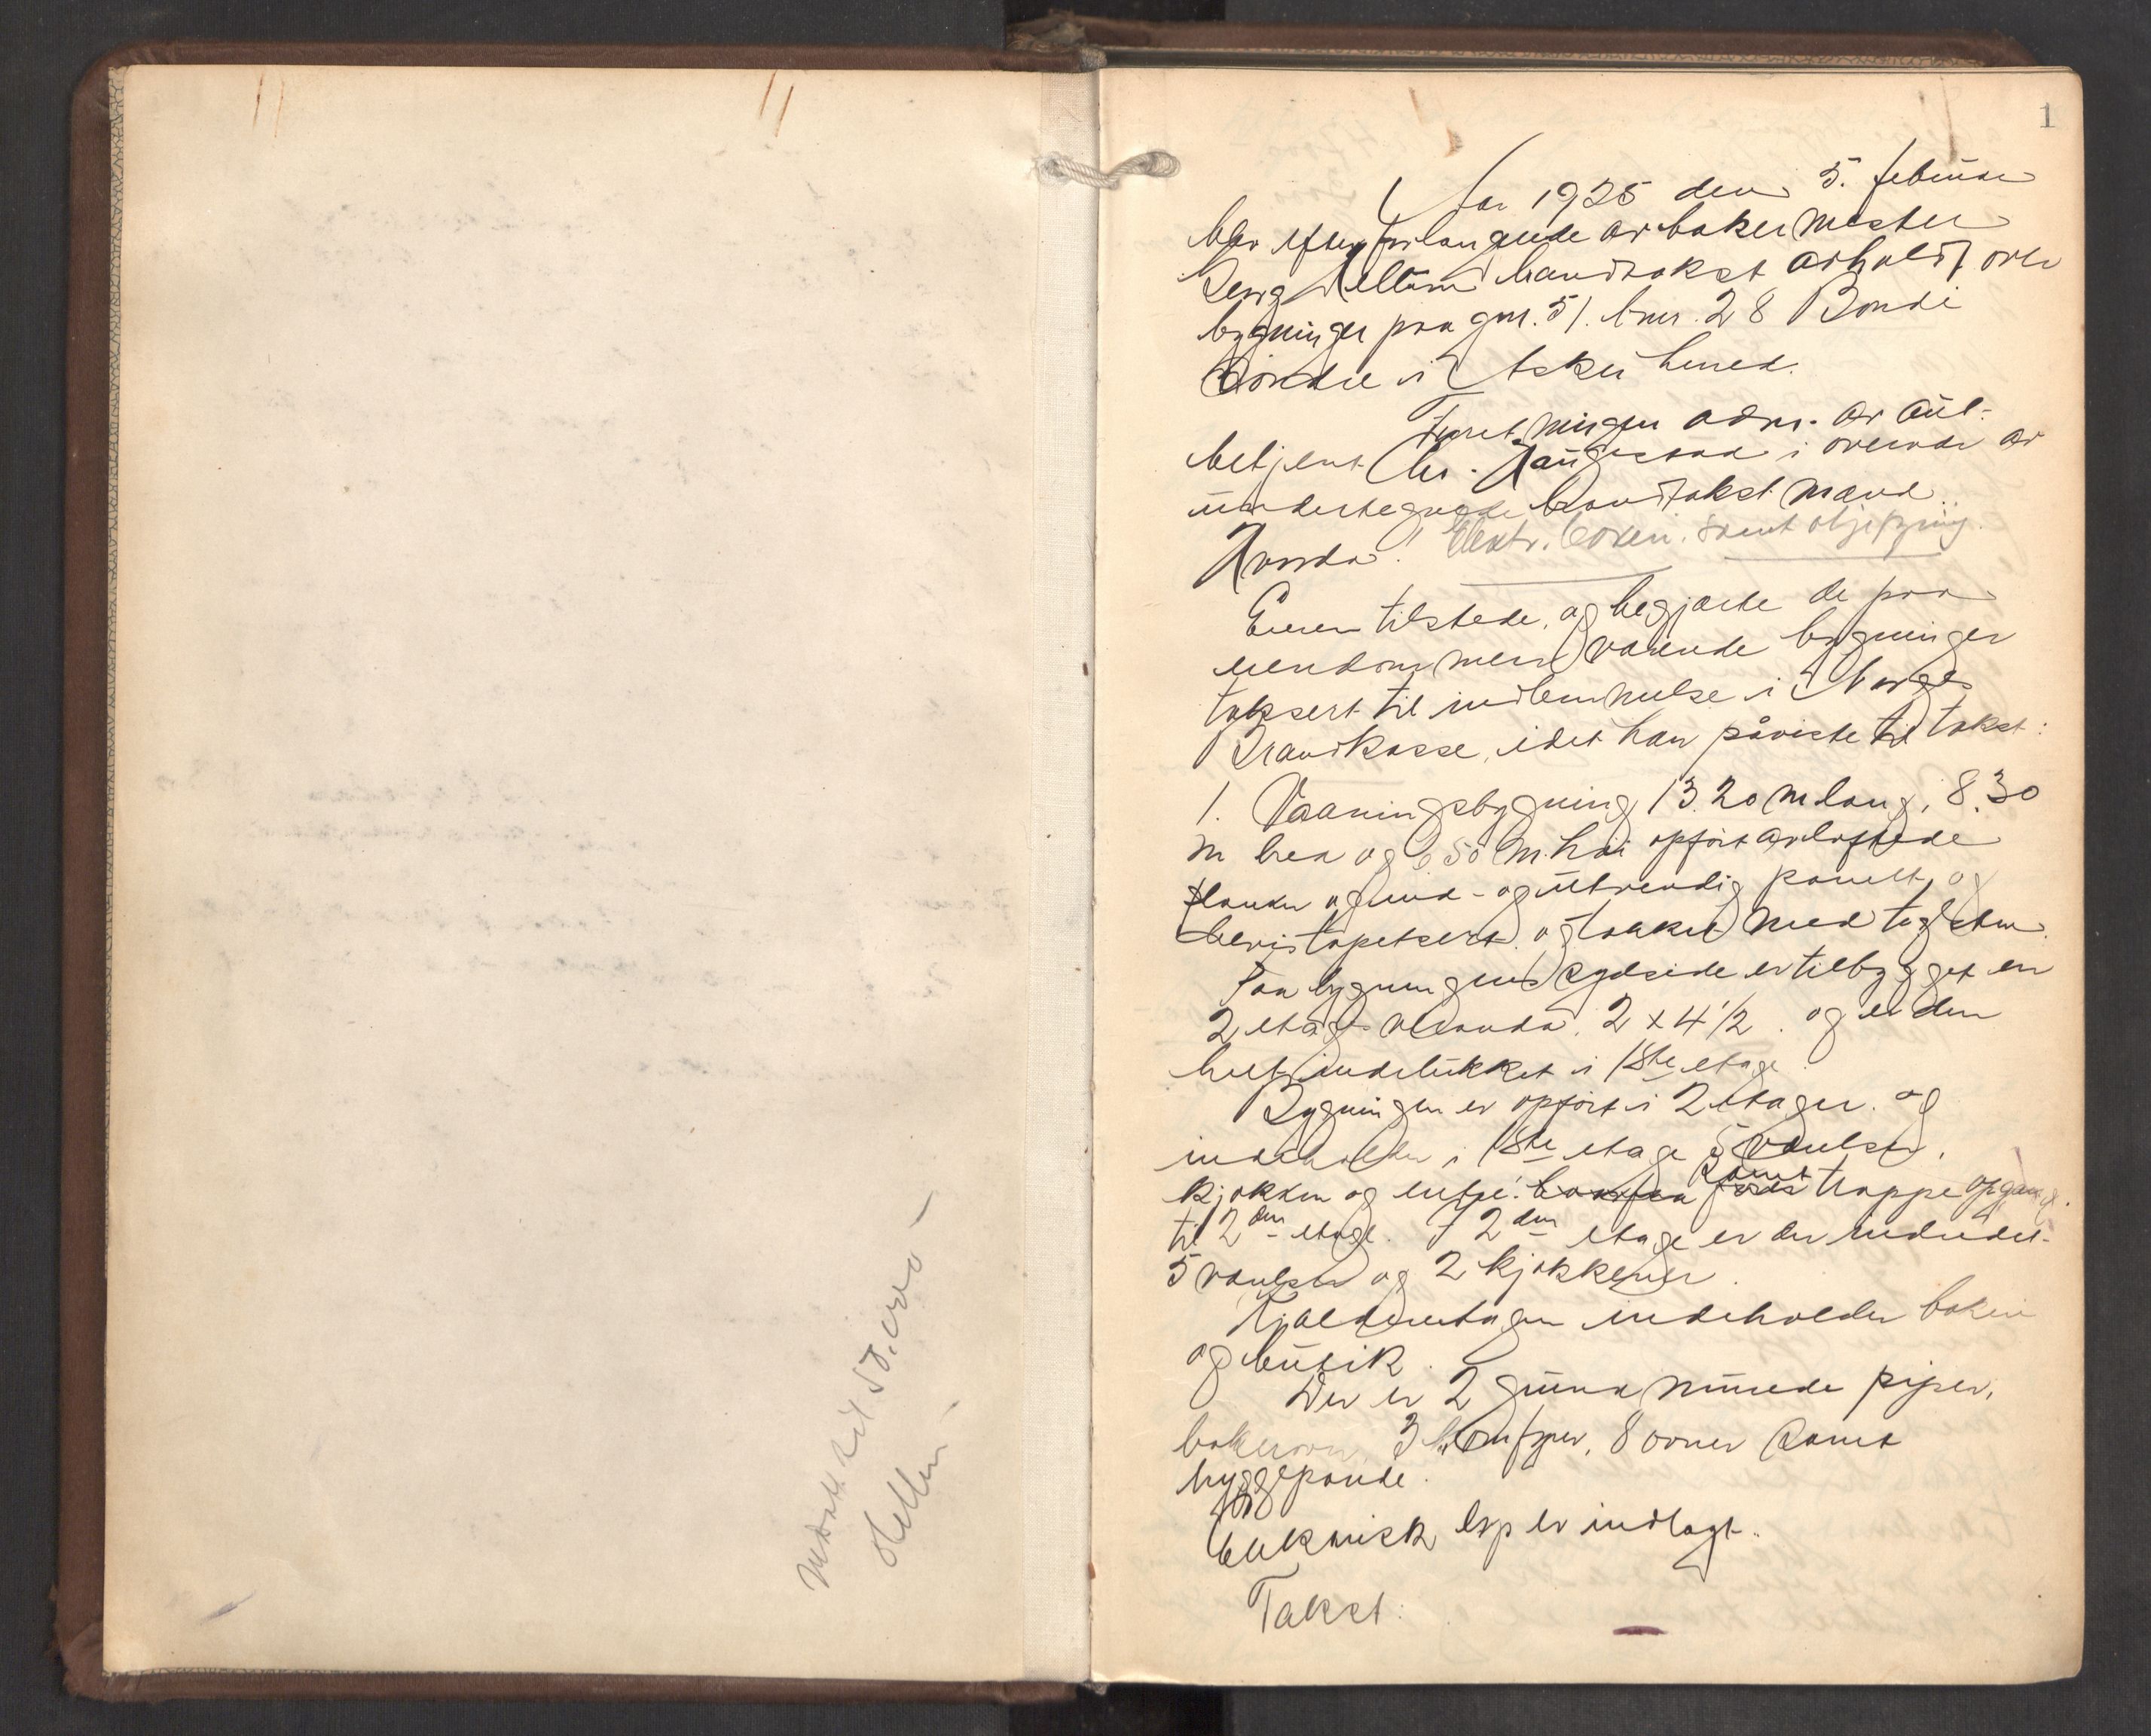 1
Aar 1925 den 5. februar
blev efter forlangende av bakermester
Georg Mellum brandtakst avholdt over
bygninger paa gnr. 51. bnr. 28 Bondi
Söndre i Asker herred.
Forretningen adm. av
betjent Chr. Haugestad i overvær av
undertegnede brandtakstmænd.
Hvorda.
Elektr. Comf. samt oljefyring.
Eieren tilstede, og begjærte de paa
eiendommen værende bygninger
taksert til indlemmelse i Norges
Brandkasse, idet han påviste til takst:
1. Vaaningsbygning 13.20 m lang, 8.30
m bred og 6 50 m. höi opfört av loftede
planker og ind- og utvendig panelt, og
delvis tapetsert og tækket med taglsten.
Paa bygningens sydside er tilbygget en
2 etag. veranda. 2 x 4 1/2. og er den
helt indelukket i 1ste etage.
Bygningen er opfört i 2 etager. og
indeholder i 1ste etage 5 værelser,
kjökken og entre. samt trappeopgang.
til 2den etage. I 2den etage er der indredet
5 værelser og 2 kjökkener.
Kjælderetagen indeholder bakeri
og butik.
Der er 2 grundmurede piper,
bakerovn, 3 komfyrer, 8 ovner samt
bryggepande.
Elektrisk lys er indlagt.
Takst: